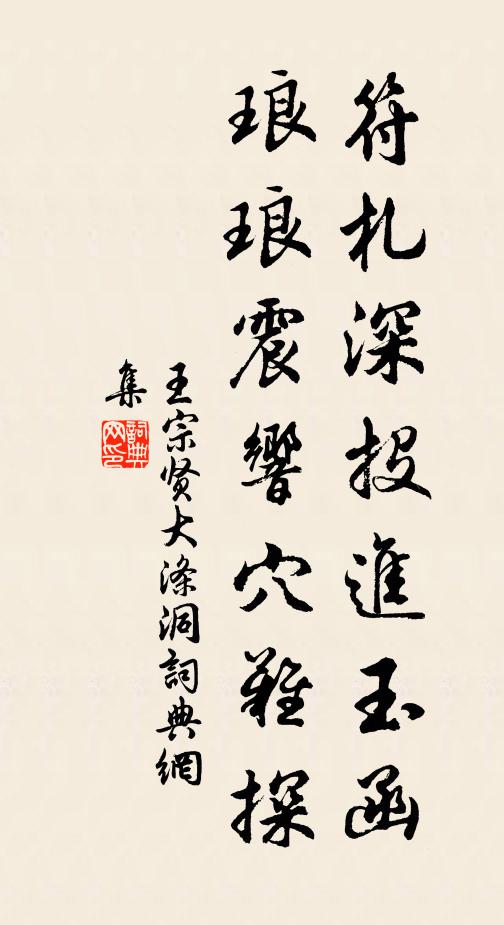 符札深投進玉函
琅琅震響穴難探
王宗贤大涤洞詞典網
集
詞典
网印